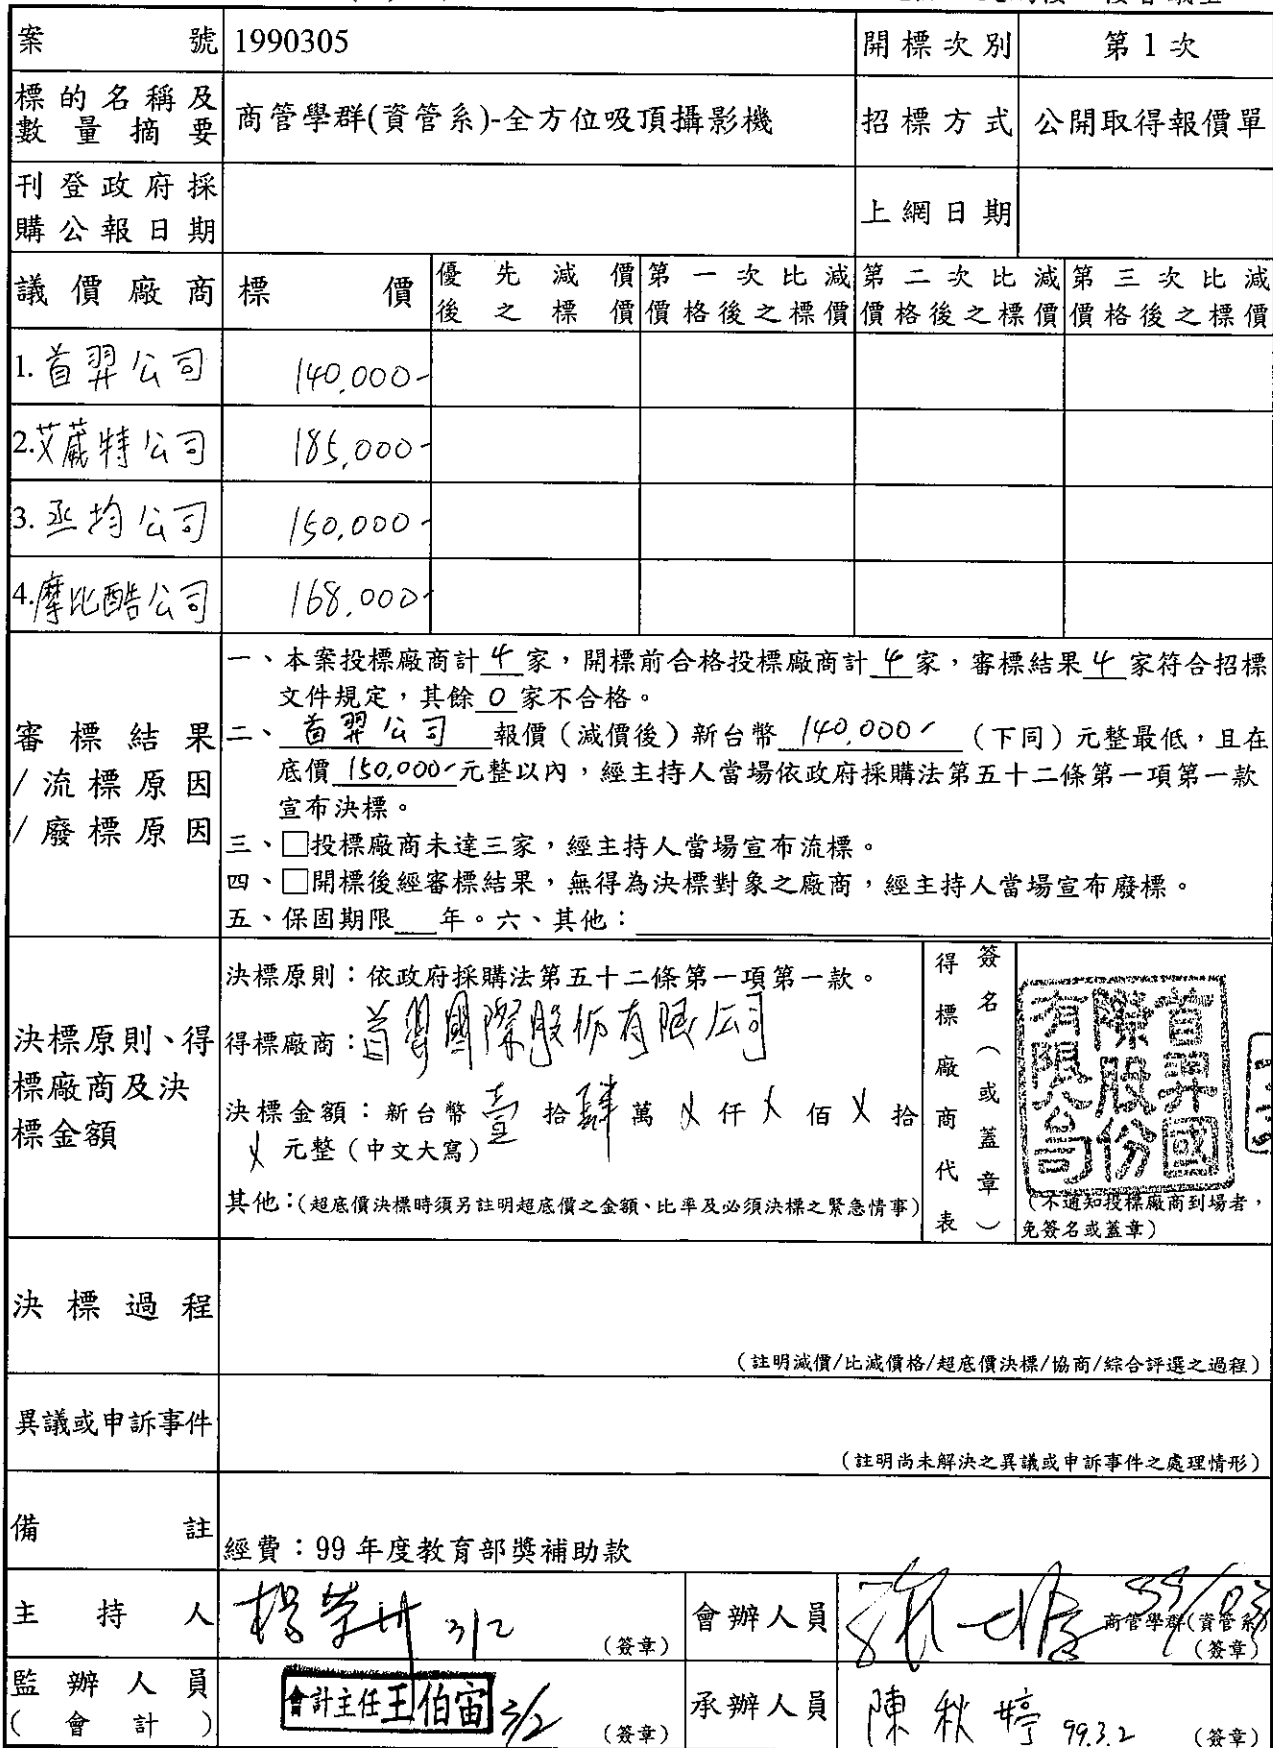 案號 1990305 開標次別 第1次
標的名稱及數量摘要 商管學群(資管系)-全方位吸頂攝影機 招標方式 公開取得報價單
刊登政府採購公報日期 上網日期
議價廠商 標價 優先減價後之標價 第一次比減價格後之標價 第二次比減價格後之標價 第三次比減價格後之標價
1.首羿公司 140,000-
2.艾葳特公司 185,000-
3.丞均公司 150,000-
4.摩比酷公司 168,000-
審標結果/流標原因/廢標原因
一、本案投標廠商計 4 家，開標前合格投標廠商計 4 家，審標結果 4 家符合招標
文件規定，其餘 0 家不合格。
二、 首羿公司 報價（減價後）新台幣 140,000- （下同）元整最低，且在
底價 150,000-元整以內，經主持人當場依政府採購法第五十二條第一項第一款
宣布決標。
三、□投標廠商未達三家，經主持人當場宣布流標。
四、□開標後經審標結果，無得為決標對象之廠商，經主持人當場宣布廢標。
五、保固期限___年。六、其他：
決標原則、得標廠商及決標金額
決標原則：依政府採購法第五十二條第一項第一款。
得標廠商：首羿國際股份有限公司
決標金額：新台幣 壹 拾 肆 萬 X 仟 X 佰 X 拾
X 元整（中文大寫）
其他：（超底價決標時須另註明超底價之金額、比率及必須決標之緊急情事）
得標廠商代表簽名（或蓋章）
首羿國際股份有限公司
（不通知投標廠商到場者，
免簽名或蓋章）
決標過程
（註明減價/比減價格/超底價決標/協商/綜合評選之過程）
異議或申訴事件
（註明尚未解決之異議或申訴事件之處理情形）
備註
經費：99年度教育部獎補助款
主持人 楊 3/2 （簽章） 會辦人員 張 商管學群(資管系) （簽章）
監辦人員（會計） 會計主任王伯宙 3/2 （簽章） 承辦人員 陳秋婷 99.3.2 （簽章）